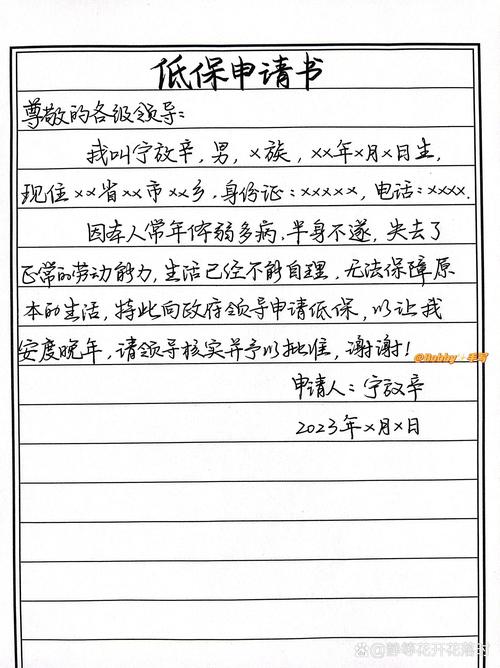 低保申请书
尊敬的各级领导:
我叫宁放辛,男,×族,××年×月×日生,
现住××省××市××乡,身份证:×××××,电话:××××.
因本人常年体弱多病,半身不遂,失去了
正常的劳动能力,生活已经不能自理,无法保障原
本的生活,特此向政府领导申请低保,以让我
安度晚年,请领导核实并予以批准,谢谢!
申请人:宁放辛
2023年×月×日